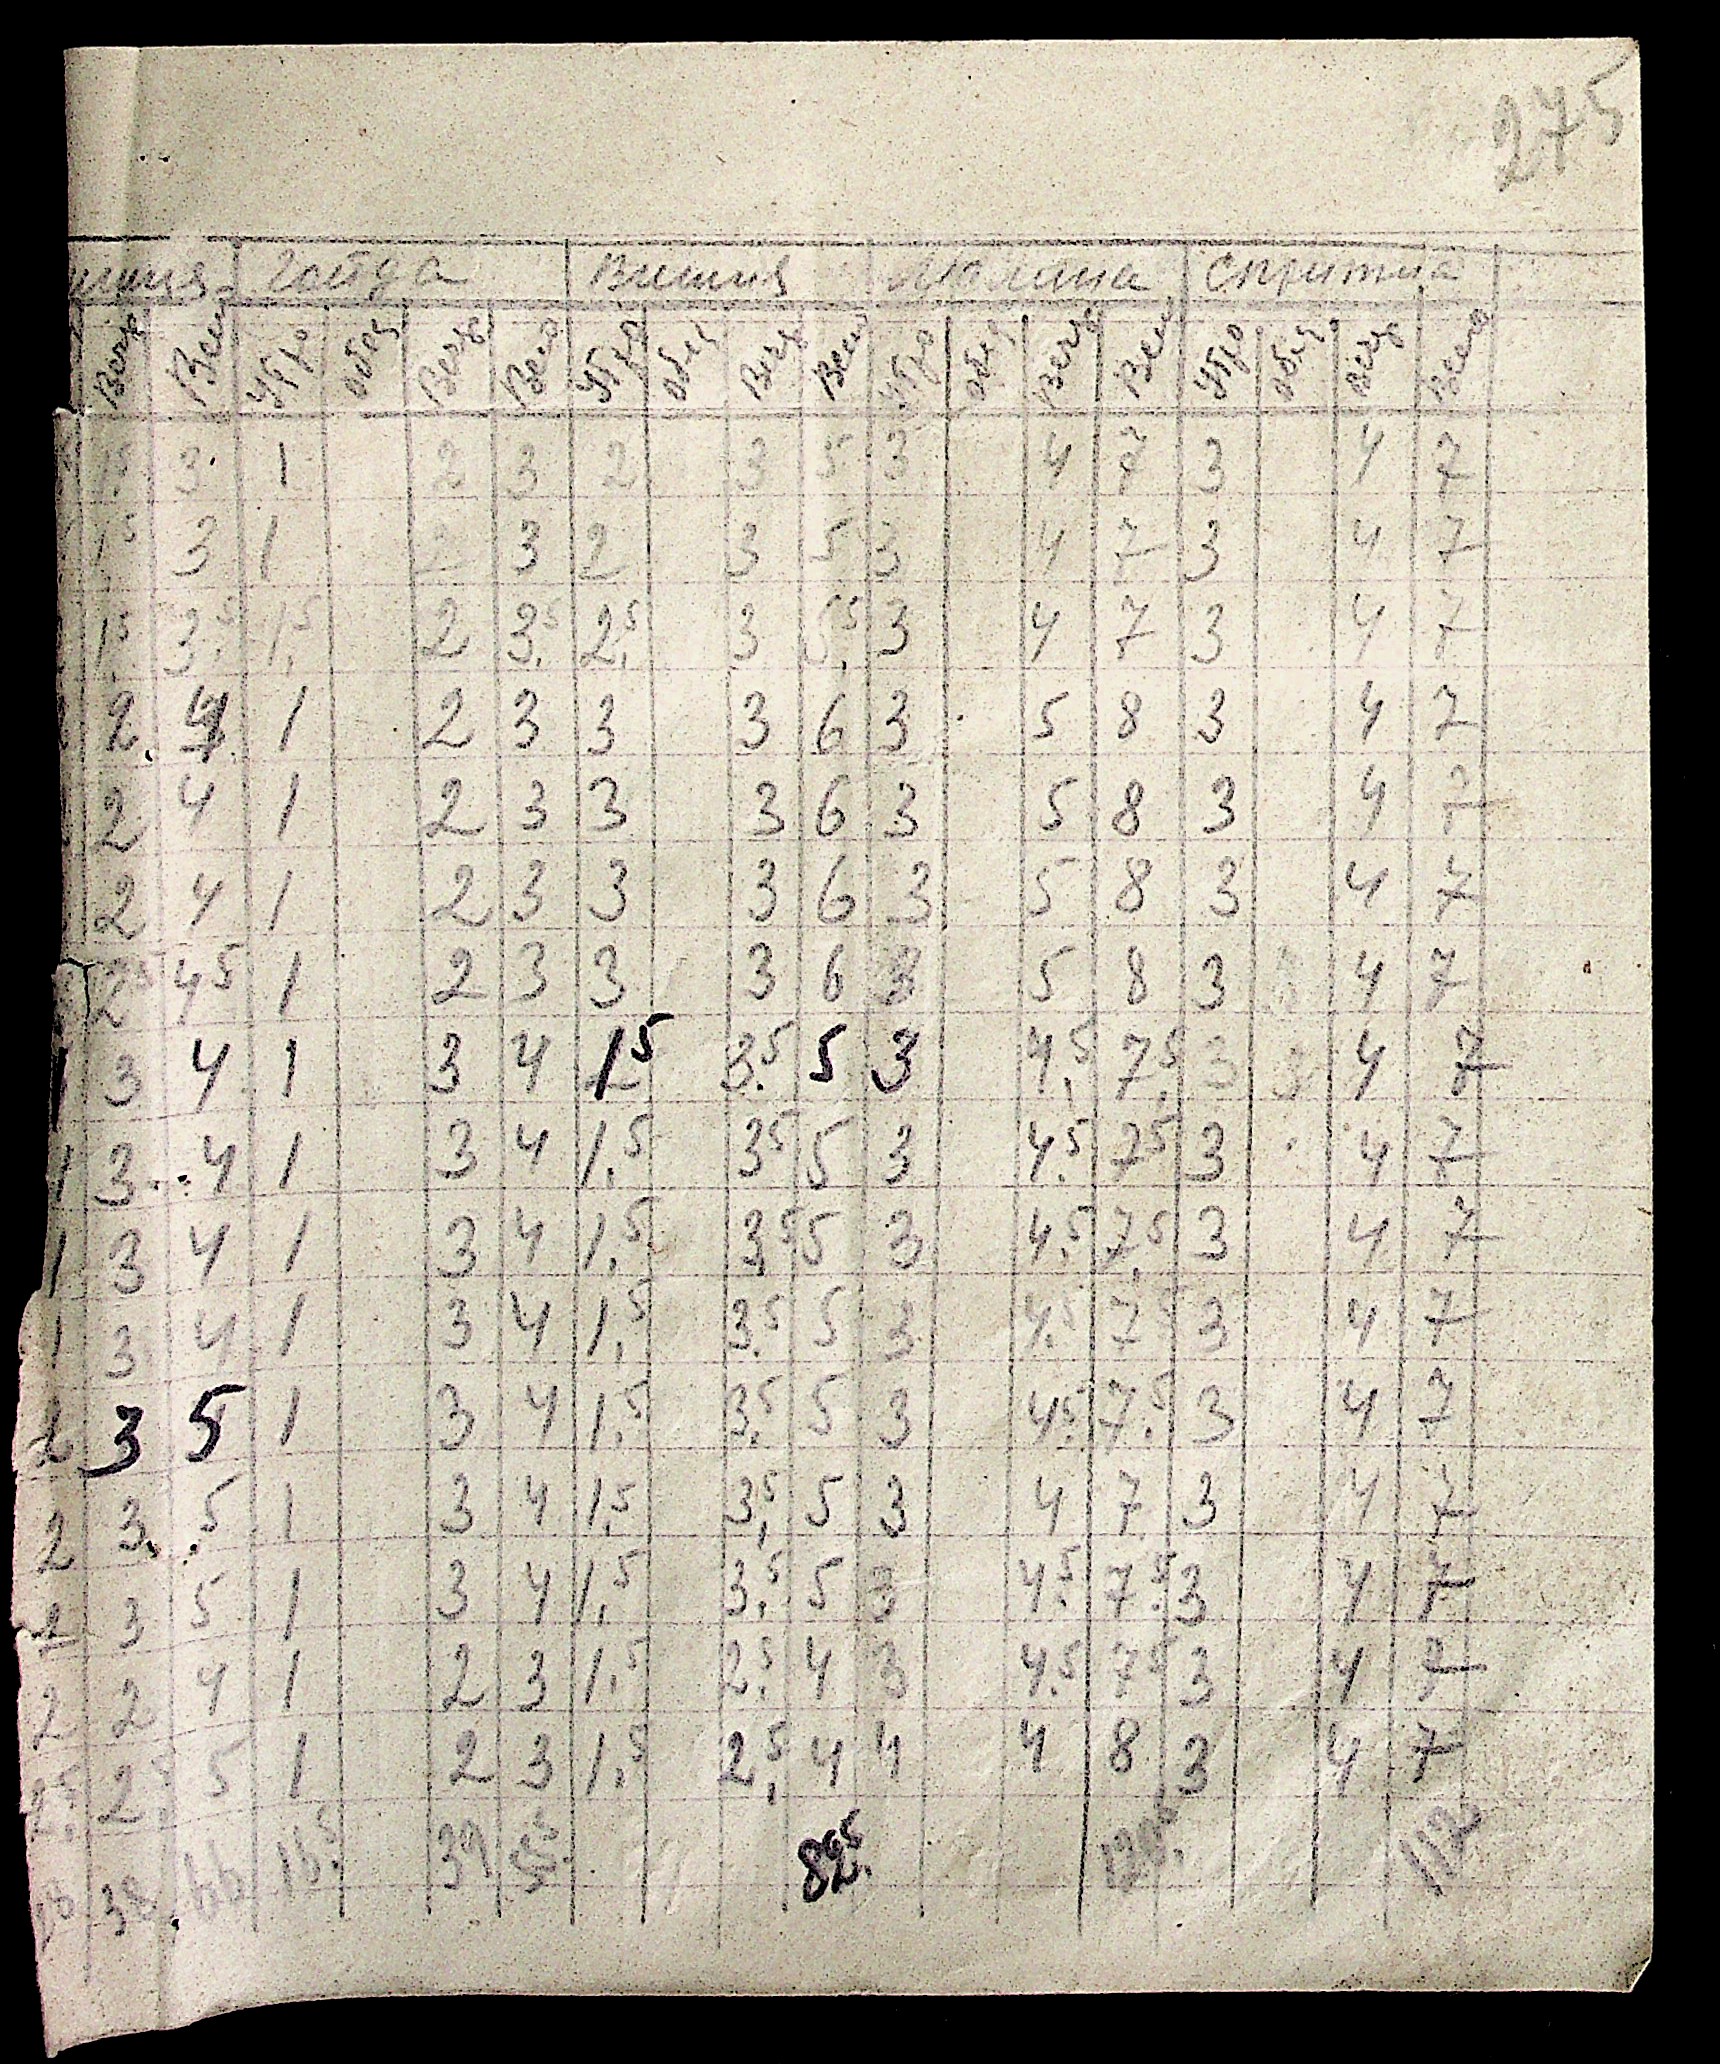 275
Гайда Вишня Малина Скрипка
Вече Всего Утро Обед Вече Всего Утро Обед Вече Всего Утро Обед Вече Всего Утро Обед Вече Всего
1,5 3 1 2 3 2 3 5 3 4 7 3 4 7
1,5 3 1 2 3 2 3 5 3 4 7 3 4 7
1,5 3,5 1,5 2 3,5 2,5 3 5,5 3 4 7 3 4 7
2 4 1 2 3 3 3 6 3 5 8 3 4 7
2 4 1 2 3 3 3 6 3 5 8 3 4 7
2 4 1 2 3 3 3 6 3 5 8 3 4 7
2,5 4,5 1 2 3 3 3 6 3 5 8 3 4 7
1 3 4 1 3 4 1,5 3,5 5 3 4,5 7,5 3 4 7
1 3 4 1 3 4 1,5 3,5 5 3 4,5 7,5 3 4 7
1 3 4 1 3 4 1,5 3,5 5 3 4,5 7,5 3 4 7
1 3 4 1 3 4 1,5 3,5 5 3 4,5 7,5 3 4 7
2 3 5 1 3 4 1,5 3,5 5 3 4,5 7,5 3 4 7
2 3 5 1 3 4 1,5 3,5 5 3 4 7 3 4 7
2 3 5 1 3 4 1,5 3,5 5 3 4,5 7,5 3 4 7
2 2 4 1 2 3 1,5 2,5 4 3 4,5 7,5 3 4 7
2,5 2,5 5 1 2 3 1,5 2,5 4 4 4 8 3 4 7
38 66 16,5 39 55 82,5 120,5 112